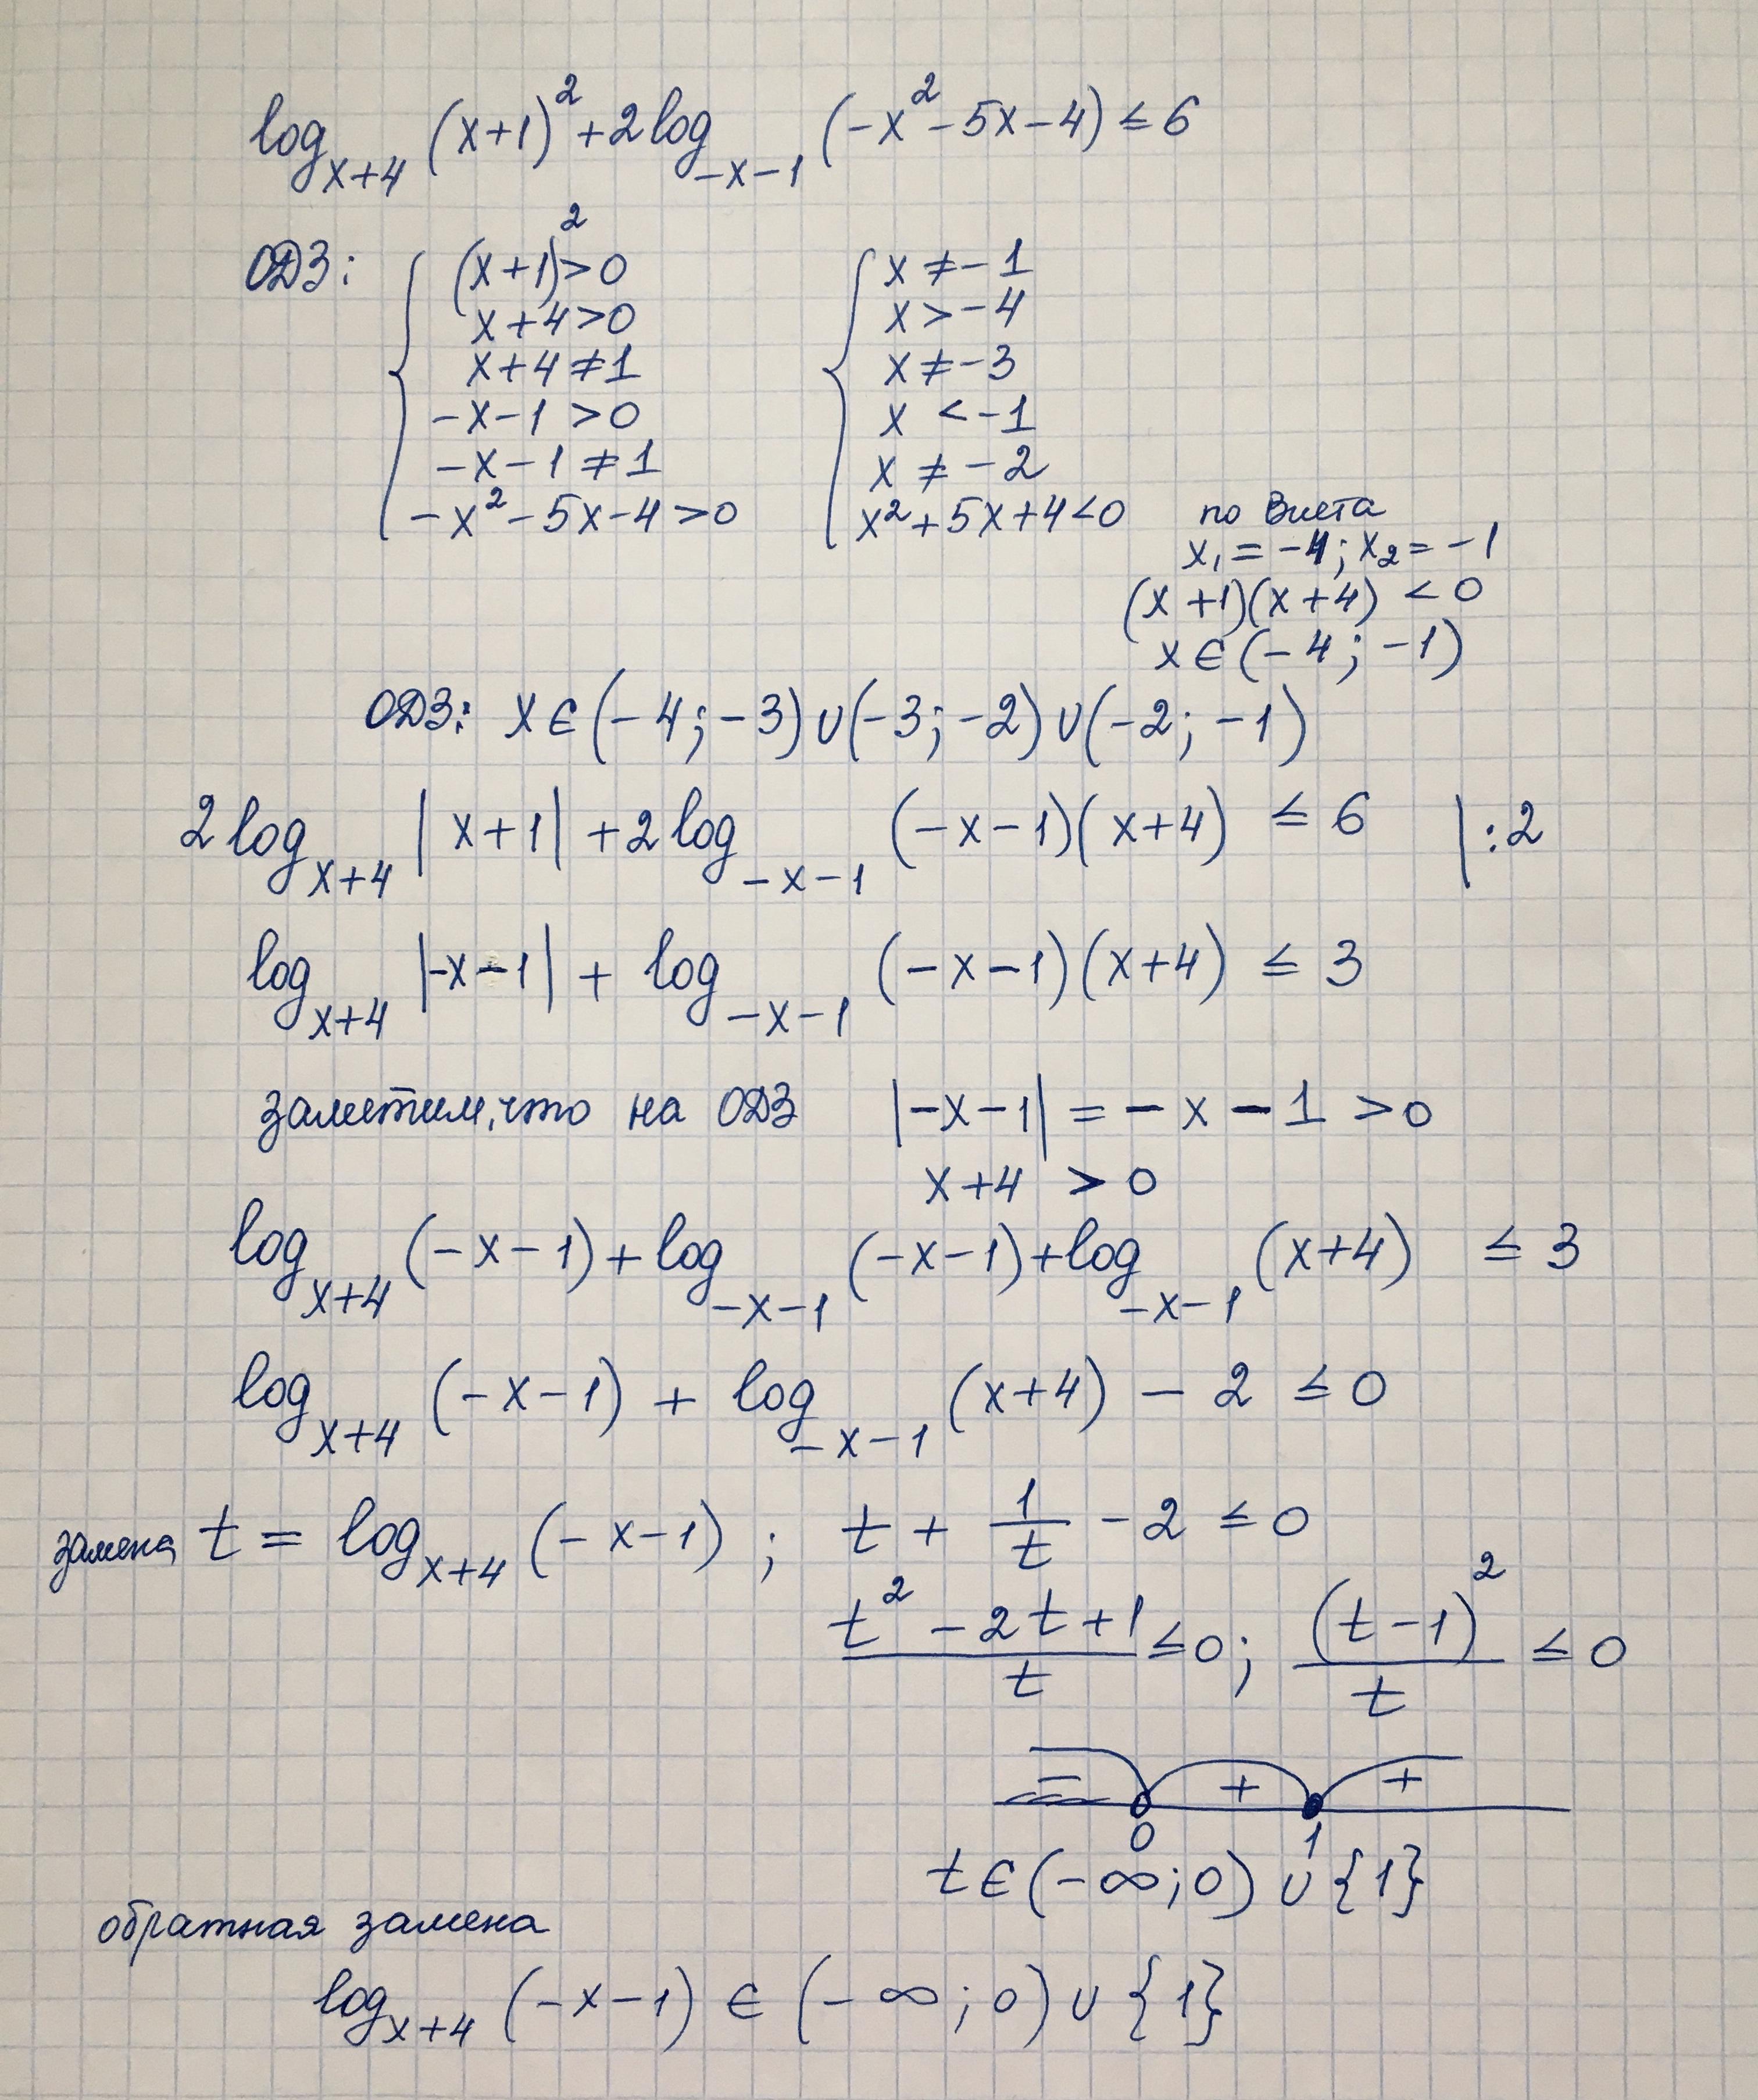 log_{x+4} (x+1)² + 2log_{-x-1} (-x² - 5x - 4) ≤ 6
ОДЗ: { (x+1)² > 0 { x ≠ -1
x+4 > 0 x > -4
x+4 ≠ 1 x ≠ -3
-x-1 > 0 x < -1
-x-1 ≠ 1 x ≠ -2
-x² - 5x - 4 > 0 x² + 5x + 4 < 0 по Виета
x₁ = -4; x₂ = -1
(x+1)(x+4) < 0
x ∈ (-4; -1)
ОДЗ: x ∈ (-4; -3) ∪ (-3; -2) ∪ (-2; -1)
2log_{x+4} |x+1| + 2log_{-x-1} (-x-1)(x+4) ≤ 6 |:2
log_{x+4} |-x-1| + log_{-x-1} (-x-1)(x+4) ≤ 3
заметим, что на ОДЗ |-x-1| = -x-1 > 0
x+4 > 0
log_{x+4} (-x-1) + log_{-x-1} (-x-1) + log_{-x-1} (x+4) ≤ 3
log_{x+4} (-x-1) + log_{-x-1} (x+4) - 2 ≤ 0
замена t = log_{x+4} (-x-1); t + 1/t - 2 ≤ 0
(t² - 2t + 1)/t ≤ 0; (t-1)²/t ≤ 0
- + +
0 1
t ∈ (-∞; 0) ∪ {1}
обратная замена
log_{x+4} (-x-1) ∈ (-∞; 0) ∪ {1}